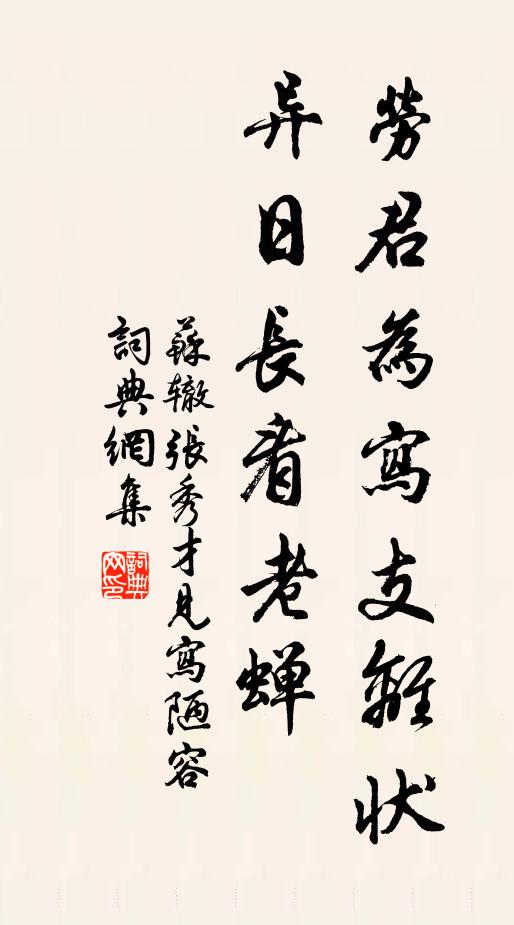 勞君為寫支離状
异日長看老蝉
蘇辙張秀才見寫陋容
詞典網集
詞典网印